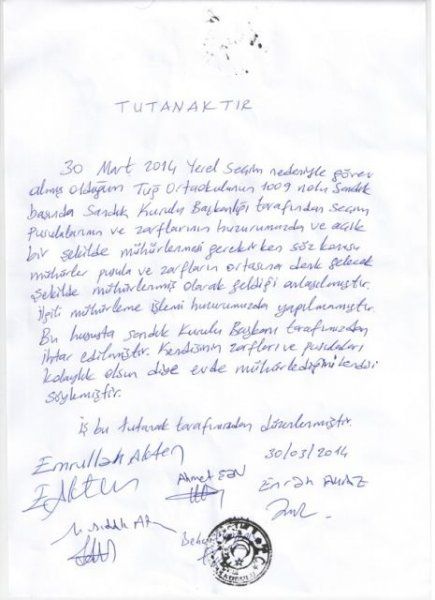 TUTANAKTIR
30 Mart 2014 Yerel Seçim nedeniyle görev
almış olduğum Tuğ Ortaokulunun 1009 nolu Sandık
başında Sandık Kurulu Başkanlığı tarafından seçim
pusulalarının ve zarflarının huzurumuzda ve açık
bir şekilde mühürlenmesi gerekirken söz konusu
mühürler pusula ve zarfların ortasına denk gelecek
şekilde mühürlenmiş olarak geldiği anlaşılmıştır.
İlgili mühürleme işlemi huzurumuzda yapılmamıştır.
Bu hususta sandık Kurulu Başkanı tarafımızdan
ihtar edilmiştir. Kendisinin zarfları ve pusulaları
kolaylık olsun diye evde mühürlediğini kendisi
söylemiştir.
İş bu tutanak tarafımızdan düzenlenmiştir.
30/03/2014
Emrullah Akten
Ahmet
Emrah
E Akten